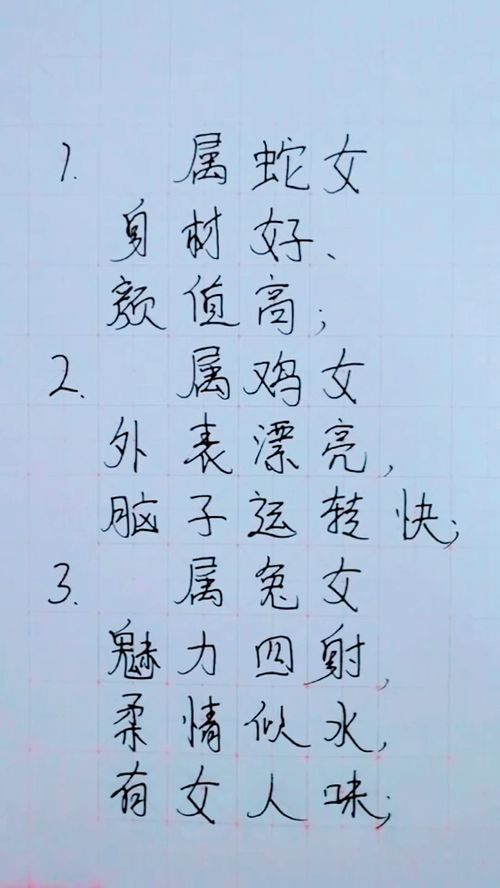 1. 属蛇女
身材好、
颜值高；
2. 属鸡女
外表漂亮，
脑子运转快；
3. 属兔女
魅力四射，
柔情似水，
有女人味；